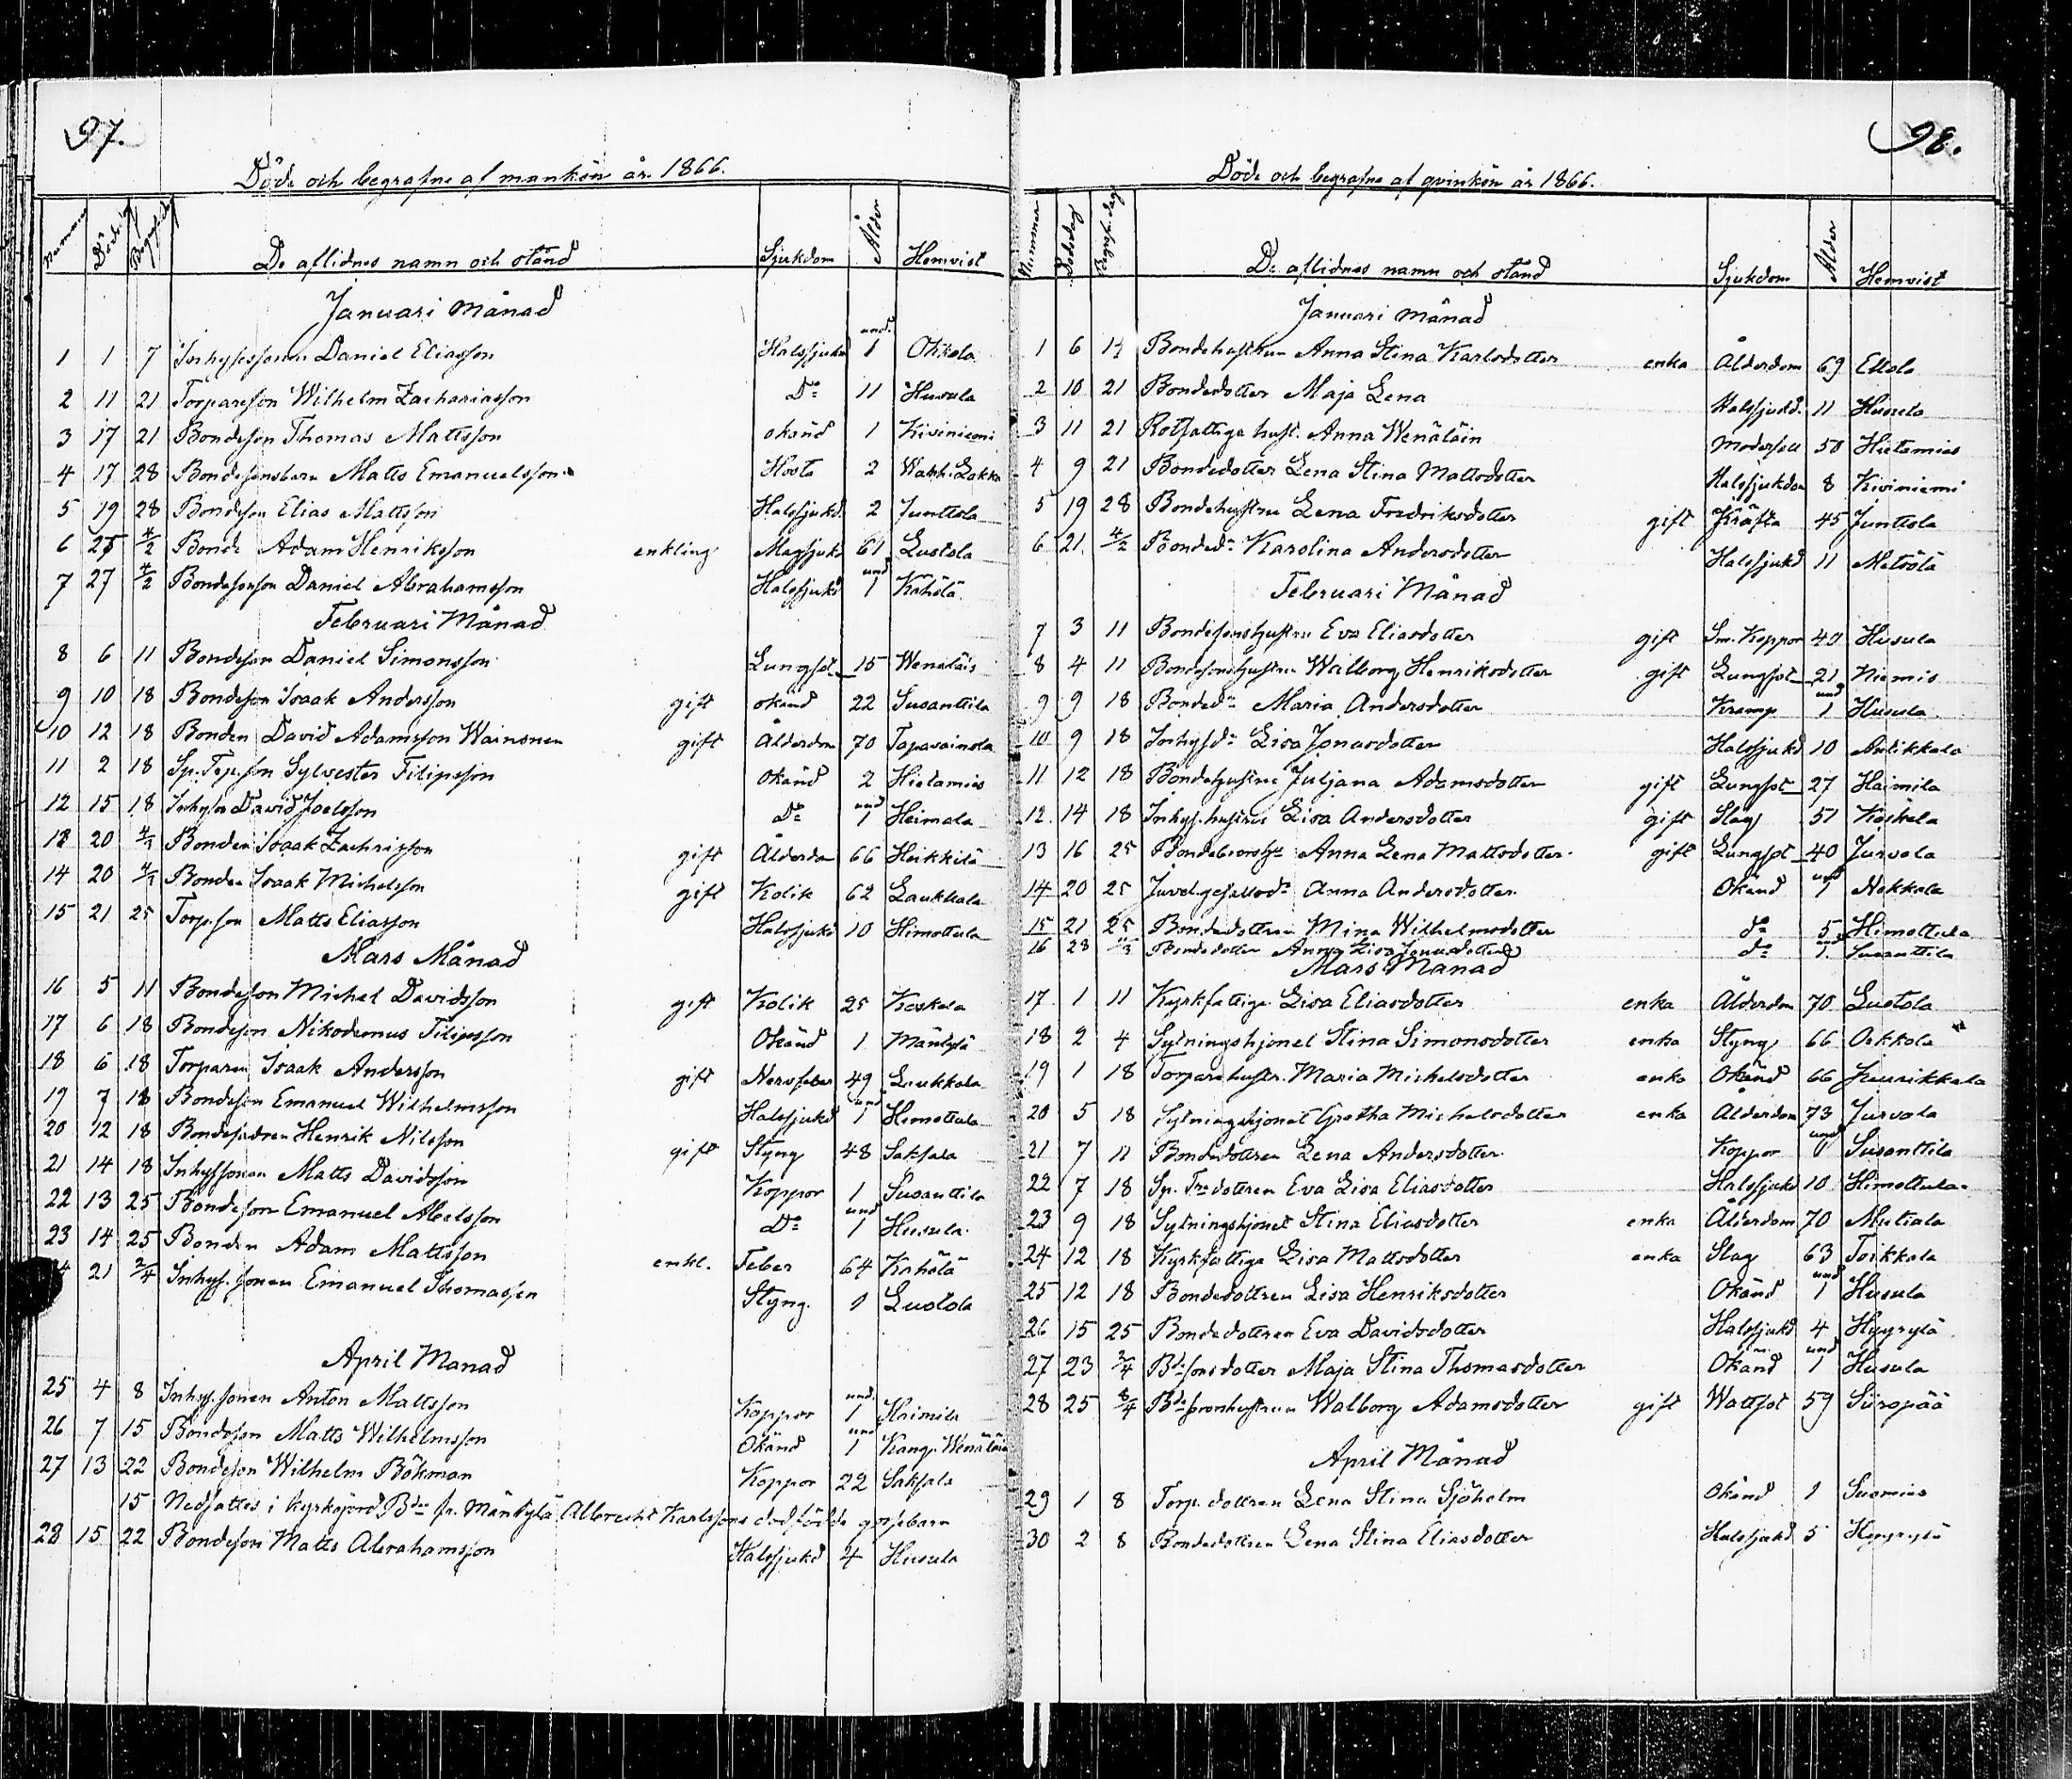 97.
Döde och begrafne af mankön år 1866.
Nummer Dödsdag Begrafn.dag De aflidnes namn och stånd Sjukdom Ålder Hemvist
Januari Månad
1 1 7 Inhysessonen Daniel Eliasson Halssjukd und. 1 Okkola
2 11 21 Torpareson Wilhelm Zachariasson Do 11 Husula
3 17 21 Bondeson Thomas Mattsson okänd 1 Kiviniemi
4 17 28 Bondesonsbarn Matts Emanuelsson Hosta 2
5 19 28 Bondeson Elias Mattsson Halssjukd. 2 Junttola
6 25 4/2 Bonde Adam Henriksson enkling Magsjukd 61 Lustola
7 27 4/2 Bondesonson Daniel Abrahamsson Halssjukd und 1 Kähölä
Februari Månad
8 6 11 Bondeson Daniel Simonsson Lungsot 15 Wenäläis
9 10 18 Bondeson Isaak Andersson gift okänd 22 Susanttila
10 12 18 Bonden David Adamsson Wainonen gift Ålderdom 70 Tapavainola
11 2 18 Sp. Trp. son Sylvester Filipsson Okänd 2 Hietamies
12 15 18 Inhyses David Joelsson Do und 1 Heimala
13 20 4/3 Bonden Isaak Zachrisson gift Ålderdom 66 Heikkilä
14 20 4/3 Bonden Isaak Michelsson gift Kolik 62 Laukkala
15 21 25 Torp.son Matts Eliasson Halssjukd 10 Himottula
Mars Månad
16 5 11 Bondeson Michel Davidsson gift Kolik 25 Koskela
17 6 18 Bondeson Nikodemus Filipsson Okänd 1 Mäntylä
18 6 18 Torparen Isaak Andersson gift Nervfeber 49 Laukkala
19 7 18 Bondeson Emanuel Wilhelmsson Halssjukd und 1 Himottula
20 12 18 Henrik Nilsson gift Styng 48 Saksala
21 14 18 Inhyssonen Matts Davidsson Koppor 1 Susanttila
22 13 25 Bondeson Emanuel Abelsson Do und 1 Husula
23 14 25 Bonden Adam Mattsson enkl. Feber 64 Kähölä
21 2/4 Inhys. sonen Emanuel Thomasson Styng. 1 Lustola
April Månad
25 4 8 Inhys. sonen Anton Mattsson Koppor und. 1 Haimila
26 7 15 Bondeson Matts Wilhelmsson Okänd und 1 Kang. Wenäläis
27 13 22 Bondeson Wilhelm Bökman Koppor 22 Saksala
15 Nedsattes i kyrkojord Bdn fr. Mäntylä Albrecht Karlssons dödfödde gossebarn
28 15 22 Bondeson Matts Abrahamsson Halssjukd 4 Husula
98.
Döde och begrafne af qvinkön år 1866.
Nummer Dödsdag Begrafn.dag De aflidnes namn och stånd Sjukdom Ålder Hemvist
Januari månad
1 6 14 Bondehustrun Anna Stina Karlsdotter enka Ålderdom 69
2 10 21 Bondedotter Maja Lena Halssjukd. 11 Husula
3 11 21 Rotfattiga hust. Anna Wenäläin 50 Hietamies
4 9 21 Bondedotter Lena Stina Mattsdotter Halssjukdom 8 Kiviniemi
5 19 28 Bondehustru Lena Fredriksdotter gift Kräfta 45 Junttola
6 21. 4/2 Bonded:r Karolina Andersdotter Halssjukd 11 Metsölä
Februari Månad
7 3 11 Bondesonshustru Eva Eliasdotter gift Sm. Koppor 40 Husula
8 4 11 Bondesonshustru Walborg Henriksdotter gift Lungsot 21 Niemis
9 9 18 Bonded:r Maria Andersdotter Kramp und 1 Husula
10 9 18 Inhysd:r Lisa Jonasdotter Halssjukd 10 Anlikkala
11 12 18 Bondehustru Juljana Adamsdotter gift Lungsot 27 Haimila
12. 14 18 Inhys. hustru Lisa Andersdotter gift Slag 51 Koskela
13 16 25 Anna Lena Mattsdotter gift Lungsot 40 Jurvala
14 20 25 Anna Andersdotter Okänd und 1 Nokkala
15 21 25 Bondedottren Mina Wilhelmsdotter do 5 Himottula
16 28 Bondedotter Anna Lisa Jonasdotter do und 1 Susanttila
Mars Månad
17 1 11 Kyrkfattiga Lisa Eliasdotter enka Ålderdom 70 Lustola
18 2 4 Sytningshjonet Stina Simonsdotter enka Styng 66 Okkola
19 1 18 Torparehustr. Maria Michelsdotter enka Okänd 66 Huurikkala
20 5 18 Sytningshjonet Gretha Michelsdotter enka Ålderdom 73 Jurvala
21 7 11 Bondedottren Lena Andersdotter Koppor und 1 Susanttila
22 7 18 Sp. Trp dottren Eva Lisa Eliasdotter Halssjukd 10 Himottula
23 9 18 Sytningshjonet Stina Eliasdotter enka Ålderdom 70 Mutiala
24 12 18 Kyrkfattiga Lisa Mattsdotter enka Slag 63 Toikkala
25 12 18 Bondedottren Lisa Henriksdotter Okänd und 1 Husula
26 15 25 Bondedottren Eva Davidsdotter Halssjukd 4 Hyyrylä
27 23 2/4 Bdesonsdotter Maja Stina Thomasdotter Okänd und 1 Husula
28 25 8/4 Walborg Adamsdotter gift Wattsot 59 Siiropää
April Månad
29 1 8 Torp. dottren Lena Stina Sjöholm Okänd 1 Suomies
30 2 8 Bondedottren Lena Stina Eliasdotter Halssjukd 5 Hyyrylä